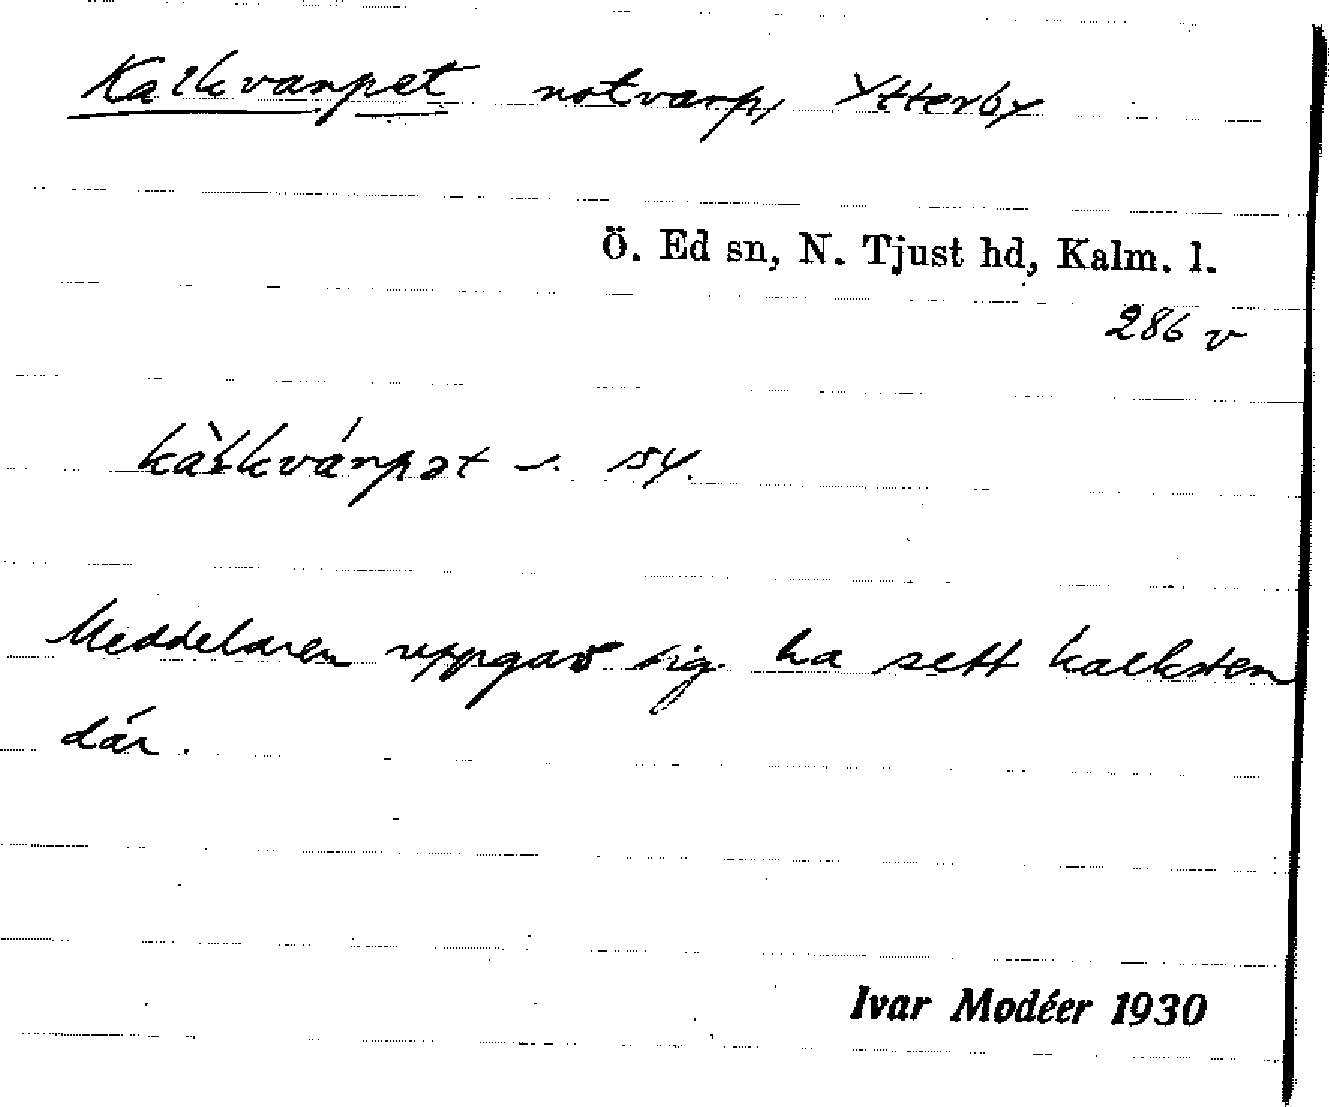 Kalkvarpet notvarp, Ytterby
Ö. Ed sn, N. Tjust hd, Kalm. l.
286 v
Meddelaren uppgav sig ha sett kalksten
där.
Ivar Modéer 1930